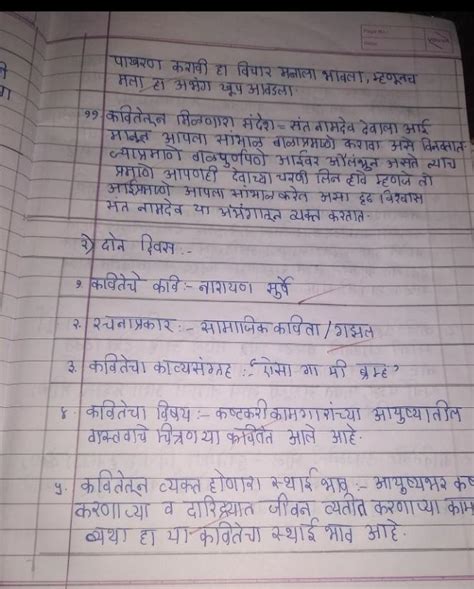 पाखरण करावी हा विचार मनाला भावला, म्हणूनच
मला हा अभंग खूप आवडला.
११ कवितेतून मिळणारा संदेश - संत नामदेव देवाला आई
मानून आपला सांभाळ बाळाप्रमाणे करावा असे विनवतात
ज्याप्रमाणे बाळपूर्णपणे आईवर अवलंबून असते त्याच
प्रमाणे आपणही देवाच्या चरणी लिन व्हावे म्हणजे तो
आईप्रमाणे आपला सांभाळ करेल असा दृढ विश्वास
संत नामदेव या अभंगातून व्यक्त करतात.
२) दोन दिवस :-
१. कवितेचे कवि :- नारायण सुर्वे
२. रचनाप्रकार :- सामाजिक कविता / गझल
३. कवितेचा काव्यसंग्रह :- 'ऐसा गा मी ब्रम्ह'
४. कवितेचा विषय :- कष्टकरी कामगारांच्या आयुष्यातील
वास्तवाचे चित्रण या कवितेत आले आहे.
५. कवितेतून व्यक्त होणारा स्थाई भाव :- आयुष्यभर कष्
करणाऱ्या व दारिद्र्यात जीवन व्यतीत करणाऱ्या काम
व्यथा हा या कवितेचा स्थाई भाव आहे.